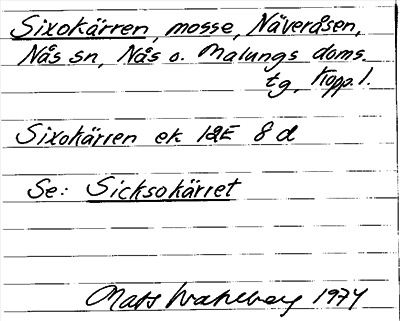 Sixokärren, mosse, Näveråsen,
Nås sn, Nås o. Malungs doms.
tg, Kopp. l.
Sixokärren ek 12E 8 d
Se: Sicksokärret
Mats Wahlberg 1974